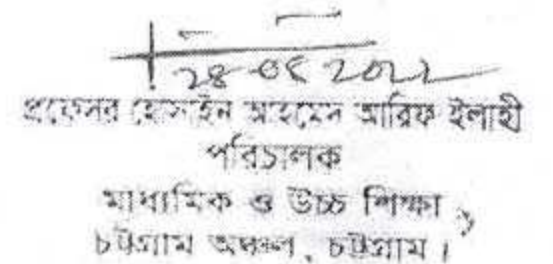 28-08 2022
প্রফেসর হোসাইন আহমেদ আরিফ ইলাহী
পরিচালক
মাধ্যমিক ও উচ্চ শিক্ষা
চট্টগ্রাম অঞ্চল, চট্টগ্রাম।